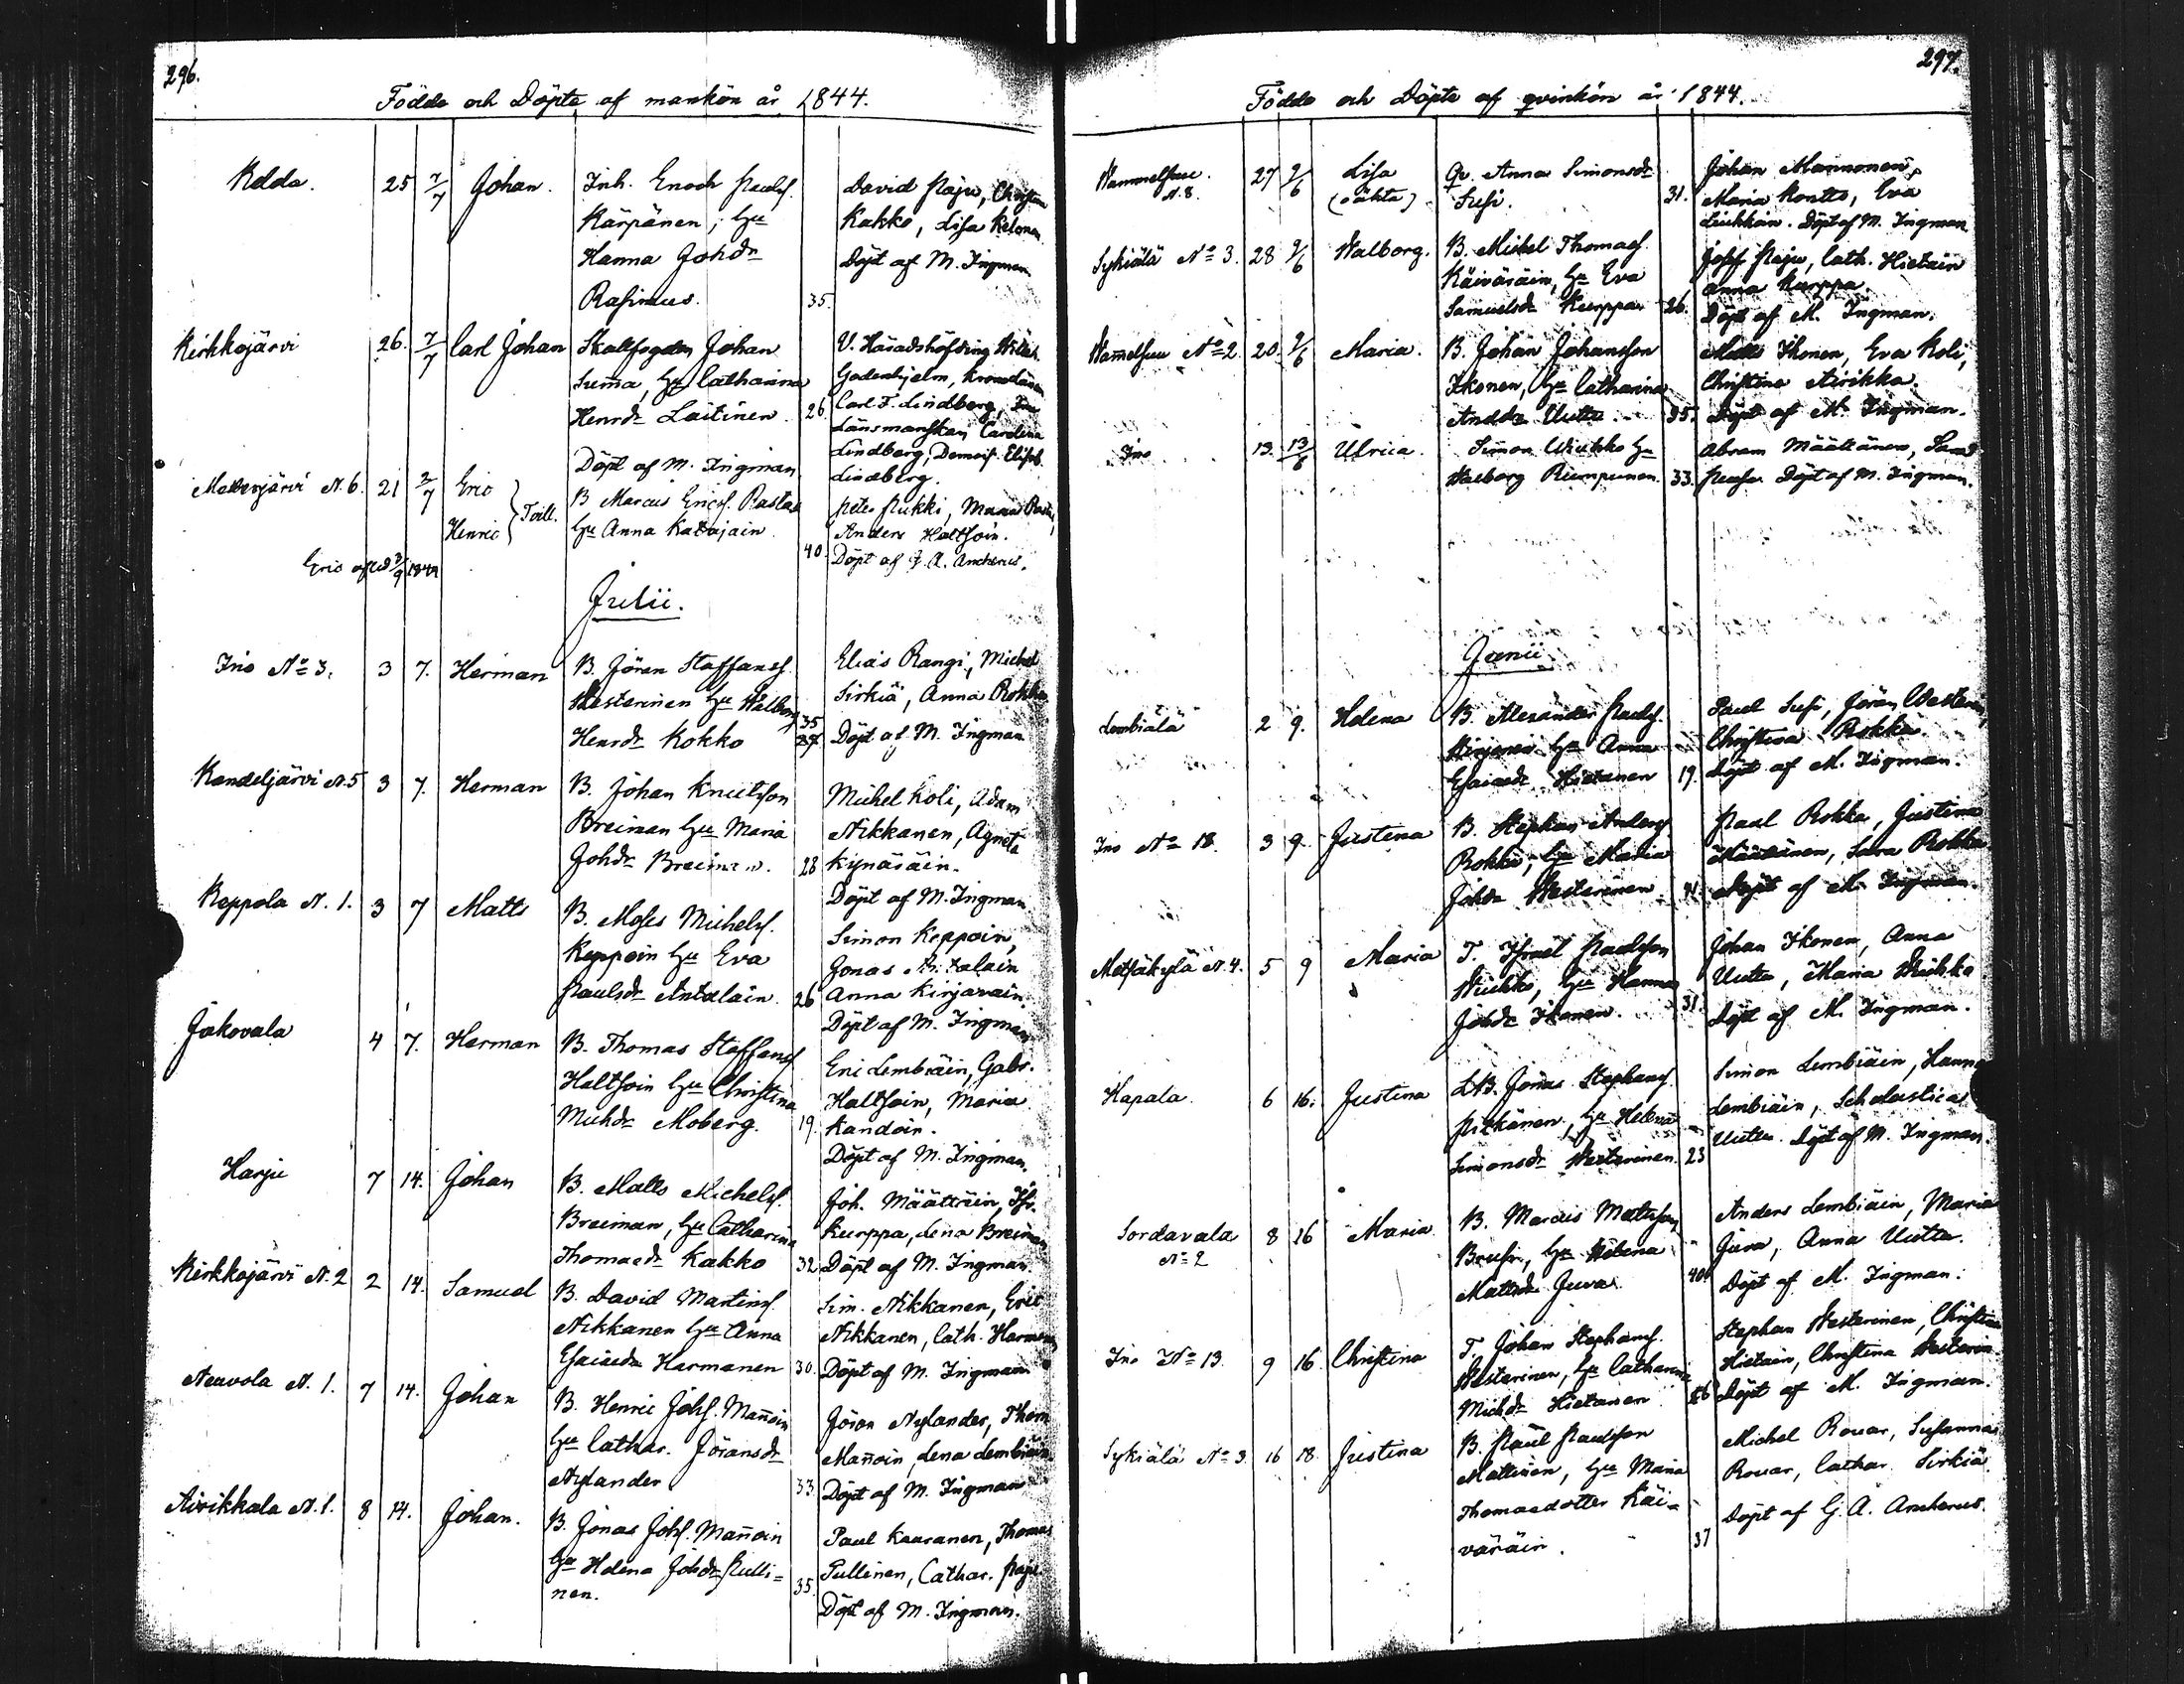 296.
Födde och Döpte af mankön år 1844.
Kdda. 25 7/7 Johan. Inh. Enoch Paulss. David Paju, Christina
Kärpänen; Hu Kakko, Lisa Kelonen
Hanna Johdr Döpt af M. Ingman
Rasimus. 35.
Kirkkojärvi 26. 7/7 Carl Johan Skallfogden Johan V. Häradshöfding
Summa, Hu Catharina Gadenhjelm,
Henrdr Laitinen 26 Carl F. Lindberg,
Länsmanskan Carolina
Döpt af M. Ingman Lindberg, Demois. Elisab.
Lindberg.
N. 6. 21 2/7 Eric B Marcus Ericss. Rastas Peter Pukki,
Henric Tvill. Hu Anna Katajain Anders Haltsoin.
40. Döpt af G. A. Ancherus.
Eric 3/9 1844
Julii.
Ino No 3. 3 7. Herman B. Jören Staffanss. Elias Rangi, Michel
Westerinen Hu Walborg 35 Sirkiä, Anna Rokka
Henrdr Kokko Döpt af M. Ingman
Kandeljärvi N. 5 3 7. Herman B. Johan Knutsson Michel Koli, Adam
Breiman Hu Maria Nikkanen, Agneta
Johdr Breiman. 28 Kynäsäin.
Döpt af M. Ingman
Keppola N. 1. 3 7 Matts B. Moses Michelss. Simon Keppoin,
Keppoin Hu Eva Jonas
Paulsdr Antalain. 26 Anna Kirjavain.
Döpt af M. Ingman
Jakovala 4 7. Herman B. Thomas Staffanss Eric Lembiäin, Gabr.
Haltsoin Hu Christina Haltsoin, Maria
Michdr Moberg. 19. Kandoin.
Döpt af M. Ingman.
Harju 7 14. Johan B. Matts Michelss. Joh. Määttäin,
Breiman, Hu Catharina Kurppa, Lena Breiman
Thomaedr Kakko 32 Döpt af M. Ingman
Kirkkojärvi N. 2 2 14. Samuel B. David Martinss. Sim. Nikkanen, Eric
Nikkanen Hu Anna Nikkanen, Cath. Harmanen
Esaiaedr Harmanen 30. Döpt af M. Ingman
Neuvola N. 1. 7 14. Johan B. Henric Johss. Mannoin Jöran Nylander, Thom
Hu Cathar. Jöransdr Mannoin, Lena Lembiäin
Nylander 33. Döpt af M. Ingman
Airikkala N. 1. 8 14. Johan. B. Jonas Johss. Mannoin Paul Kaaranen, Thomas
Hu Helena Johdr Pulli= Pullinen, Cathar. Paju.
nen. 35. Döpt af M. Ingman.
297.
Födde och Döpte af qvinkön år 1844.
Wammelsuu. 27 2/6 Lisa Qv. Anna Simonsdr Johan Mannonen,
N. 8. (oäkta) Susi. 31. Maria Kontto, Eva
Liukkoin. Döpt af M. Ingman
Sykiälä No 3. 28 2/6 Walborg. B. Michel Thomass. Josef Paju, Cath. Hietain
Käiväräin, Hu Eva Anna Kurppa.
Samuelsdr Kurppa 26. Döpt af M. Ingman.
Wammelsuu No 2. 20. 2/6 Maria. B. Johan Johansson Matts Ikonen, Eva Koli,
Ikonen, Hu Catharina Christina Airikka.
Anddr Uutta 35. Döpt af M. Ingman.
Ino 13. 13/6 Ulrica. Simon Wiukko Hu Abram Määttänen,
Walborg Rumpunen. 33. Döpt af M. Ingman.
Junii
Lembiälä 2 9. Helena B. Alexander Paulss. Paul Susi, Jöran Westerin,
Kirjanen Hu Anna Christina Rokka.
Esaiaedr Hietanen 19. Döpt af M. Ingman.
Ino No 18. 3 9. Justina B. Stephan Anderss. Paul Rokka, Justina
Rokka, Hu Maria Määttänen, Sara Rokka
Johdr Westerinen 41. Döpt af M. Ingman.
Metsäkylä N. 4. 5 9 Maria T. Israel Paulsson Johan Ikonen, Anna
Wiukko, Hu Hanna Uutta, Maria Wiukko
Johdr Ikonen. 31. Döpt af M. Ingman.
Hapala. 6 16. Justina LB. Jonas Stephanss. Simon Lembiäin, Hanna
Pitkänen, Hu Helena Lembiäin, Scholastica
Simonsdr Westerinen. 23 Uutta. Döpt af M. Ingman.
Sordavala 8 16 Maria B. Marcus Mattsson Anders Lembiäin, Maria
No 2 Brusi, Hu Helena Juva, Anna Uutta.
Mattsdr Juva. 40. Döpt af M. Ingman.
Ino No 13. 9 16 Christina T. Johan Stephanss. Stephan Westerinen, Christina
Westerinen, Hu Catharina Hietain, Christina Westerin
Michdr Hietanen Döpt af M. Ingman.
Sykiälä No 3. 16 18. Justina B. Paul Paulsson Michel Rouar, Susanna
Mattinen, Hu Maria Rouar, Cathar. Sirkiä.
Thomaedotter Käi= Döpt af G. A. Ancherus.
väräin. 37